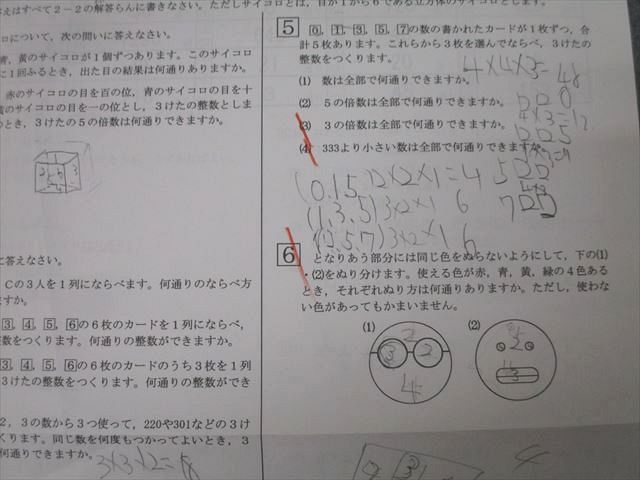 答えはすべて2－2の解答らんに書きなさい。ただしサイコロとは、目が1から6である立方体のサイコロとします。
ロについて、次の問いに答えなさい。
青、黄のサイコロが1個ずつあります。このサイコロ
に1回ふるとき、出た目の結果は何通りありますか。
赤のサイコロの目を百の位、青のサイコロの目を十
黄のサイコロの目を一の位とし、3けたの整数としま
のとき、3けたの5の倍数は何通りできますか。
に答えなさい。
Cの3人を1列にならべます。何通りのならべ方
ますか。
3, 4, 5, 6の6枚のカードを1列にならべ、
整数をつくります。何通りの整数ができますか。
3, 4, 5, 6の6枚のカードのうち3枚を1列
3けたの整数をつくります。何通りの整数ができ
2，3の数から3つ使って，220や301などの3け
くります。同じ数を何度もつかってよいとき，3
何通りできますか。
3×3×2=18
5 0, 1, 3, 5, 7の数の書かれたカードが1枚ずつ、合
計5枚あります。これらから3枚を選んでならべ、3けたの
整数をつくります。
4×4×3=48
(1) 数は全部で何通りできますか。
(2) 5の倍数は全部で何通りできますか。
□□0
4×3=12
(3) 3の倍数は全部で何通りできますか。
□□5
(4) 333より小さい数は全部で何通りできますか。
(0,1,5)2×2×1=4
5□□
(1,3,5)3×2×1 6
7□□
(3,5,7)3×2×1 6
6 となりあう部分には同じ色をぬらないようにして、下の(1)
・(2)をぬり分けます。使える色が赤、青、黄、緑の4色ある
とき、それぞれぬり方は何通りありますか。ただし、使わな
い色があってもかまいません。
(1)
(2)
2
3
2
4
2
3